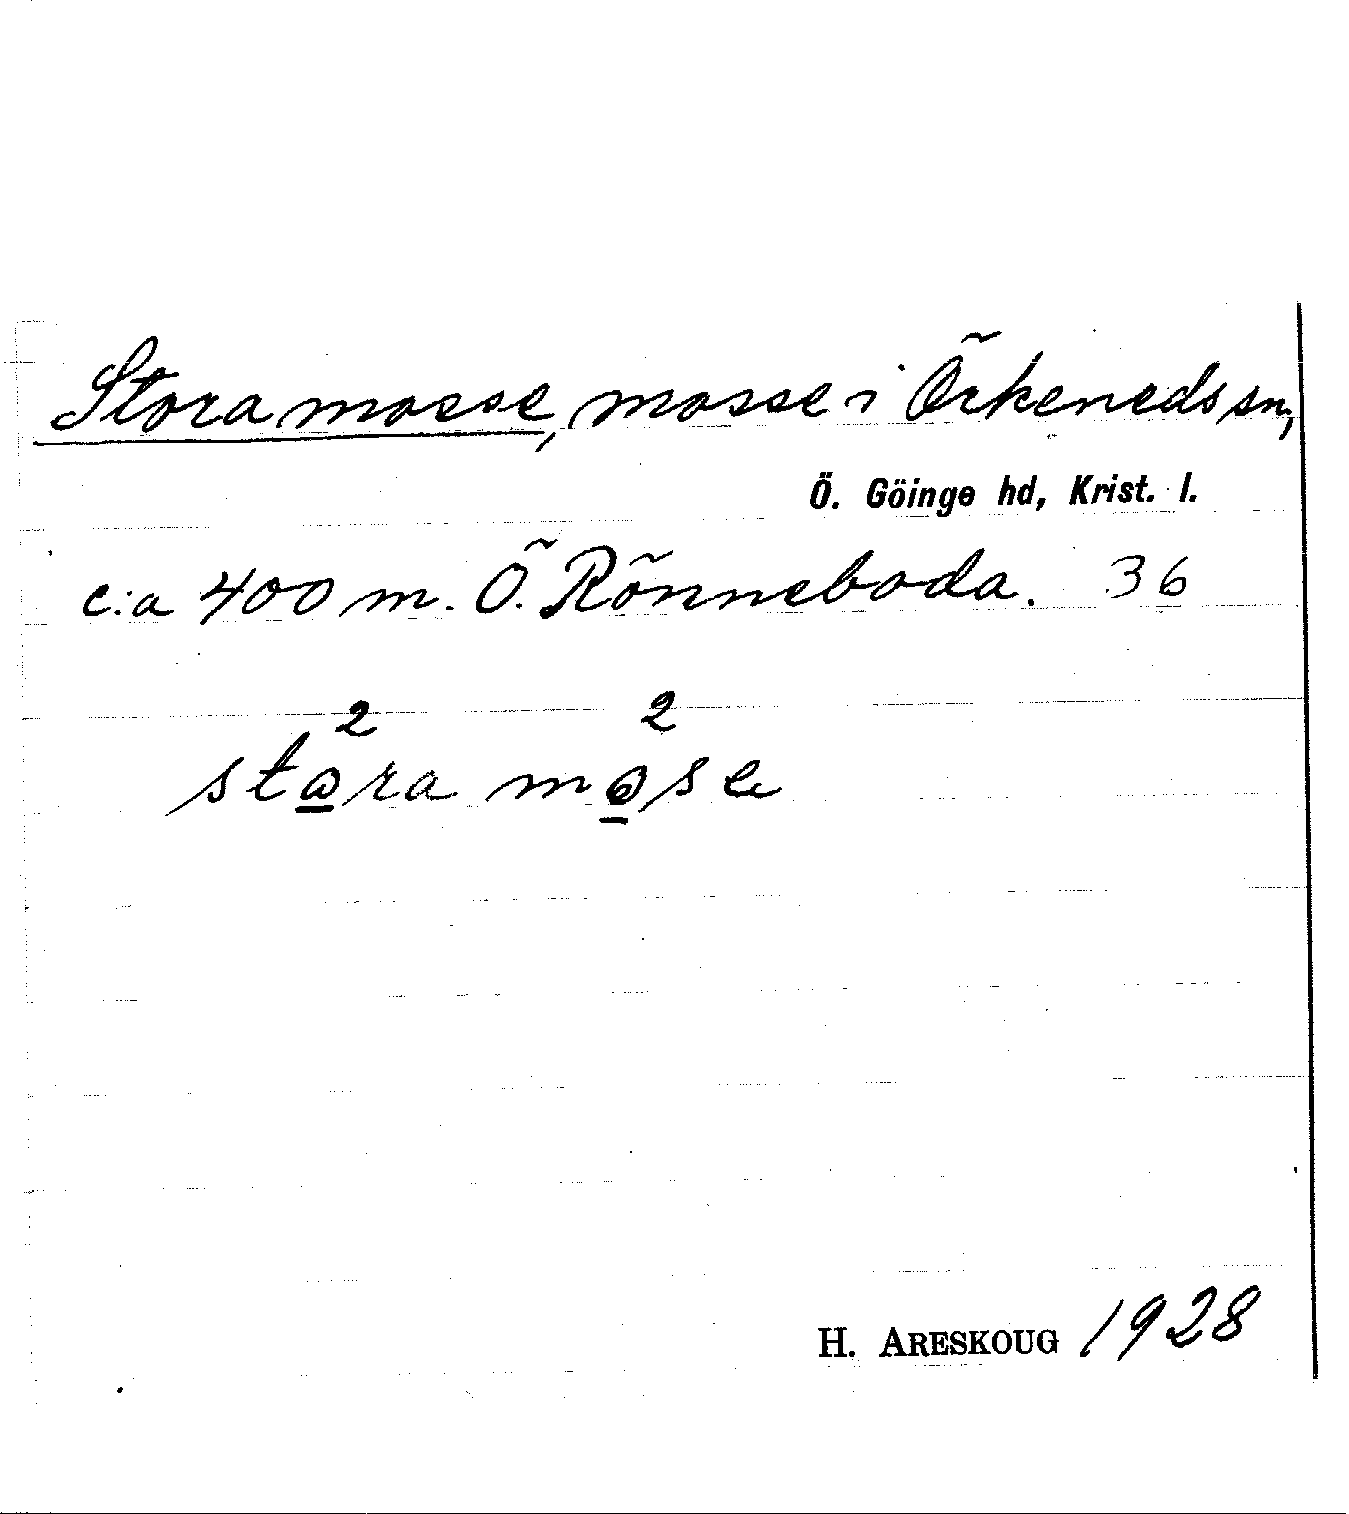 Stora mosse, mosse i Õrkeneds sn,
Ö. Göinge hd, Krist. l.
c:a 400 m. Õ. Rõnneboda. 36
2 2
stora mose
H. ARESKOUG 1928